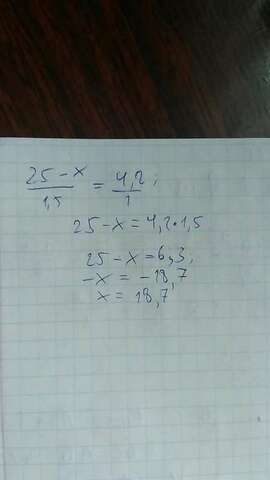 25-x/1,5 = 4,2/1;
25-x=4,2•1,5
25-x=6,3,
-x= -18,7
x= 18,7